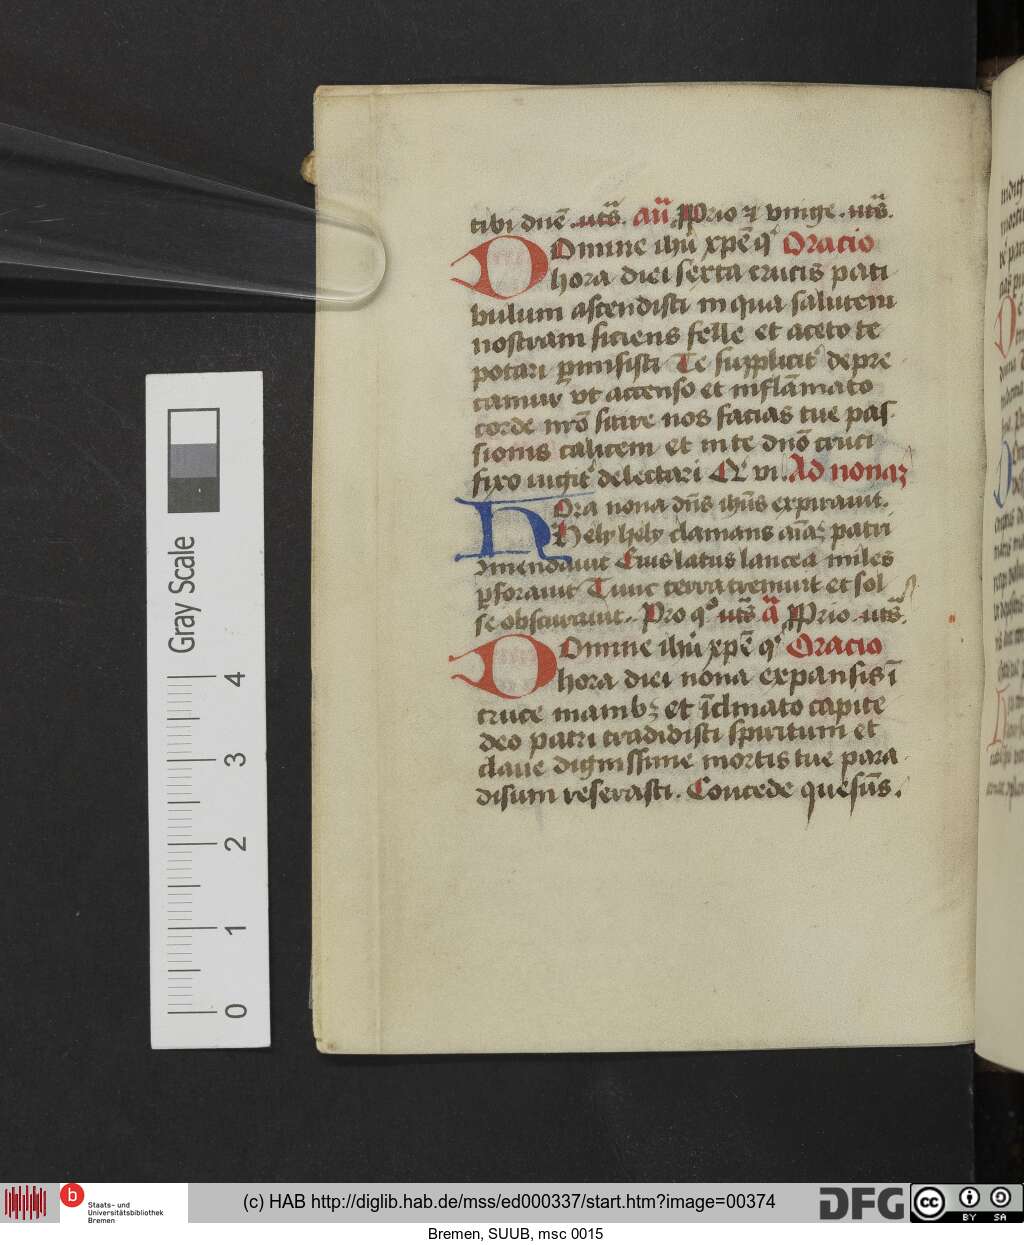 tibi dn̄e .uts̄. an̄ Prio et vinge .uts̄.
Domine ihū xp̄e q' Oracio
hora diei sexta crucis pati
bulum ascendisti in qua salutem
nostram siciens felle et aceto te
potari p̱misisti Te supplicit' depre
camur vt accenso et inflāmato
corde nr̄o sitire nos facias tue pas
sionis calicem et in te dn̄o cruci
fixo iugit' delectari Qr vi. Ad nonaꝫ
Hora nona dn̄s ihūs expirauit.
Hely hely clamans aīaꝫ patri
9mendauit Eius latus lancea miles
ꝑforauit Tunc terra tremuit et sol
se obscurauit. Pro q° uts̄ ā Prio .uts̄.
Domine ihū xp̄e q' Oracio
hora diei nona expansis ī
cruce manibꝫ et īclinato capite
deo patri tradidisti spiritum et
claue dignissime mortis tue para
disum reserasti. Concede quesūs.
Gray Scale
4
3
2
1
0
b Staats- und
Universitätsbibliothek
Bremen
(c) HAB http://diglib.hab.de/mss/ed000337/start.htm?image=00374
DFG
cc BY SA
Bremen, SUUB, msc 0015